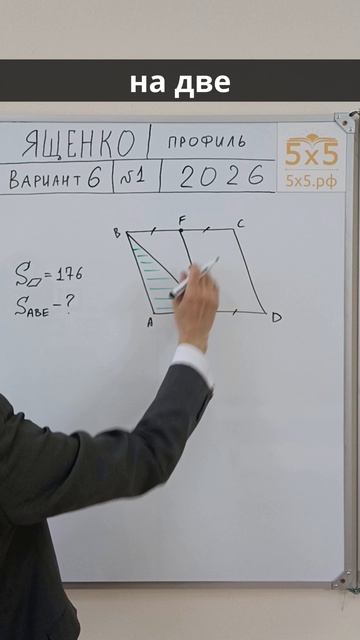 на две
ЯЩЕНКО ПРОФИЛЬ
ВАРИАНТ 6 №1 2026
5х5
5х5.рф
F
B C
S▱ = 176
SABE - ?
A D